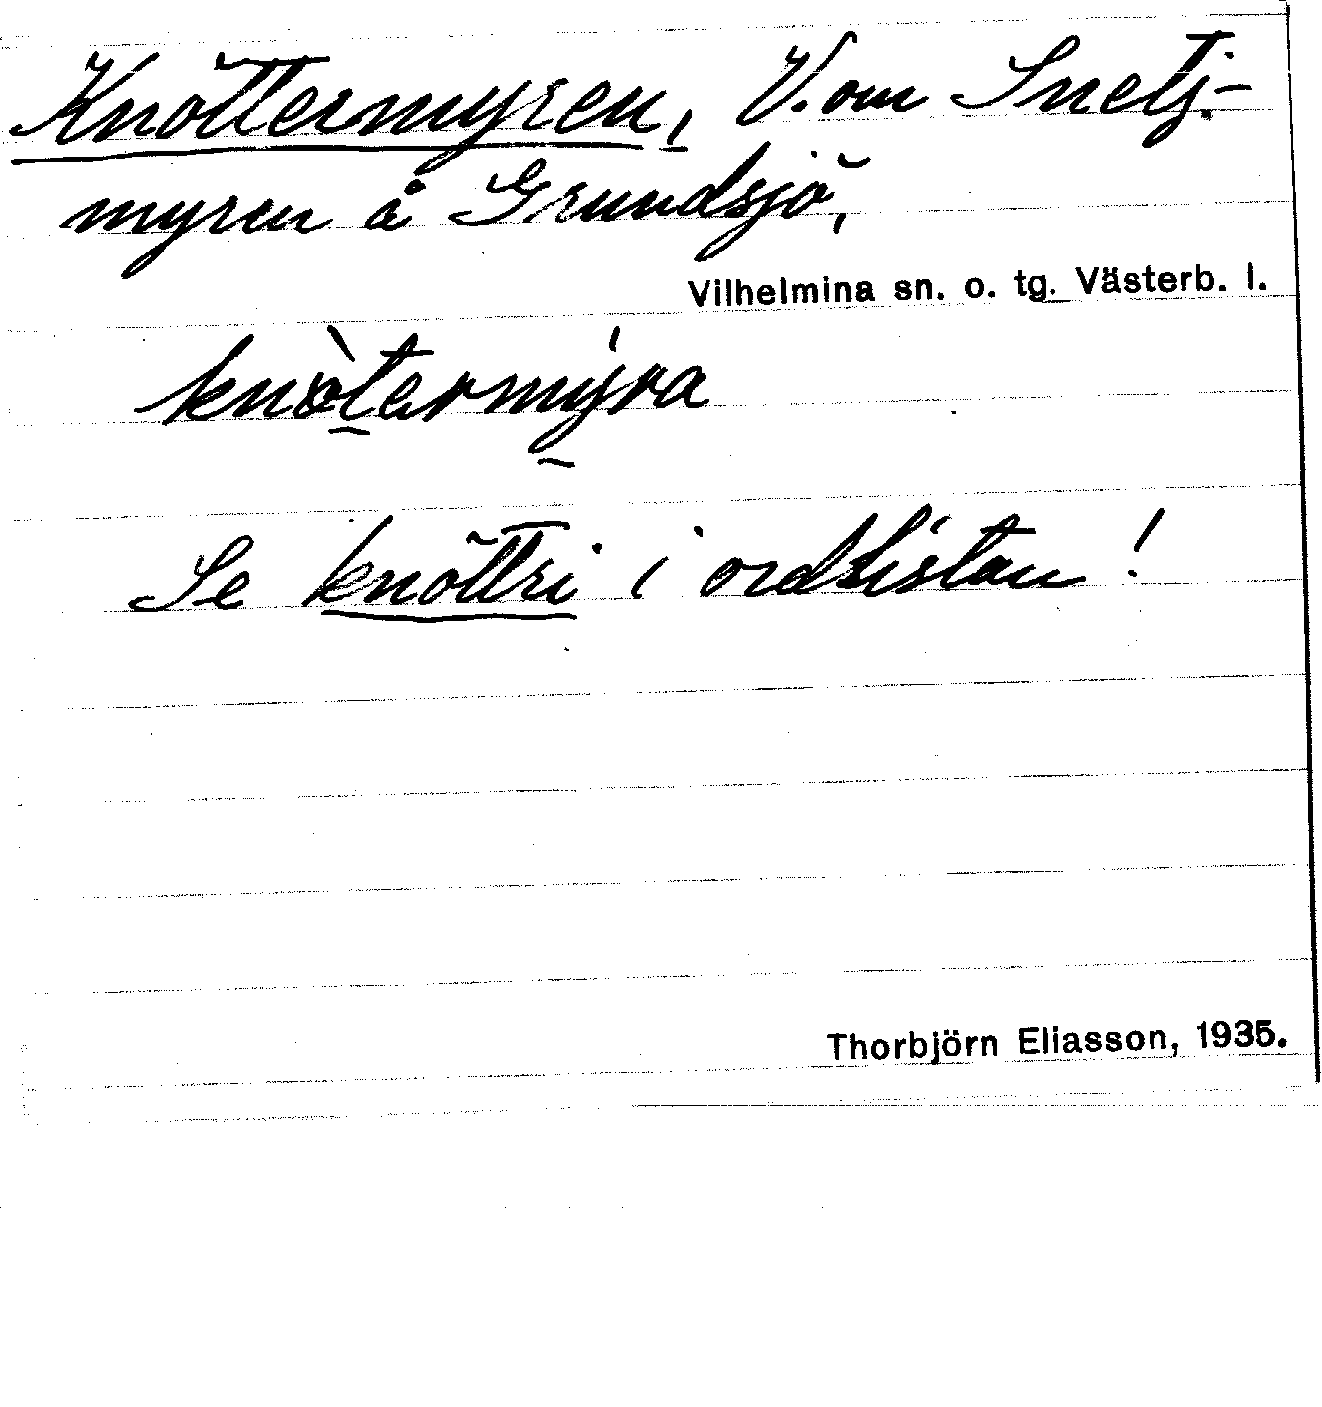 Knöttermyren, V. om Snetj-
myren å Grundsjö,
Vilhelmina sn. o. tg. Västerb. l.
knö̀termýra
Se knöttri i ordlistan!
Thorbjörn Eliasson, 1935.